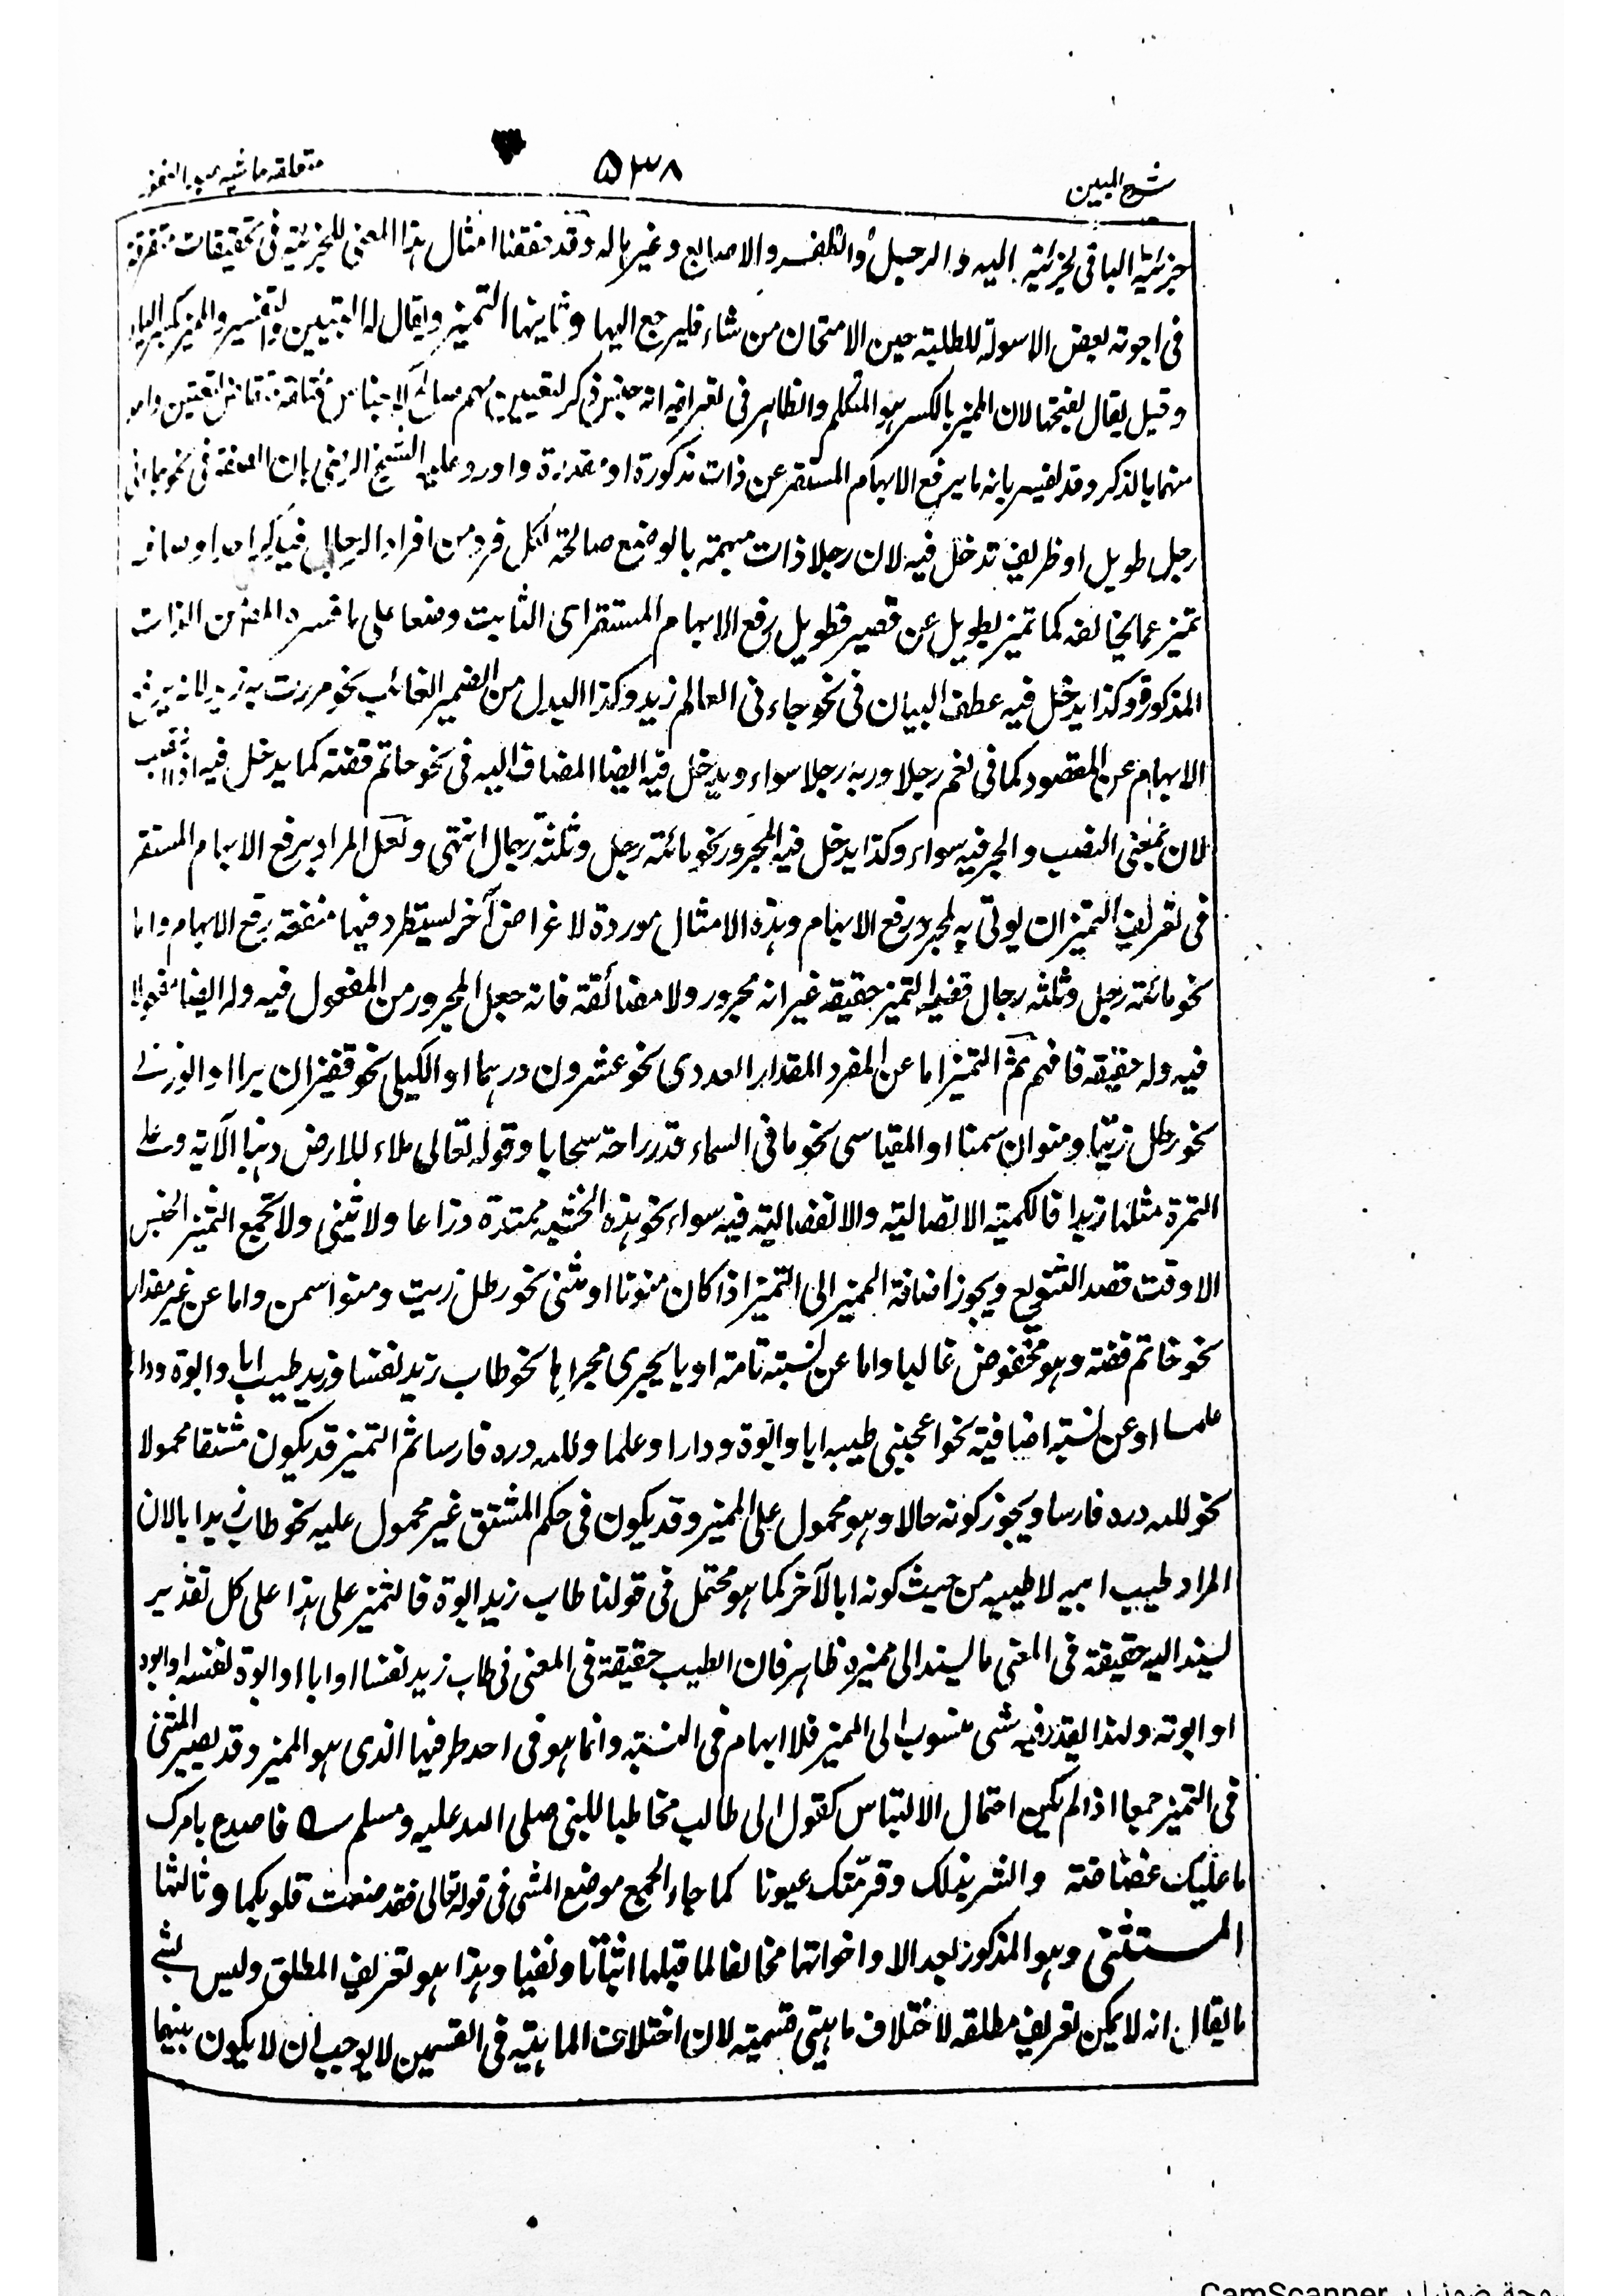 شرح المبين
۵۳۸
جزئية الباقي لجزئية اليه والرجل والظفر والاصابع وغيرها له وقد حققنا امثال هذا المعنى للجزئية في تحقيقات متفرقة
في اجوبة بعض الاسولة للطلبة حين الامتحان من شاء فليرجع اليها وثانيها التميز ويقال له التبيين والتفسير والمميز بكسر الياء
وقيل يقال بفتحها لان المميز بالكسر هو المتكلم والظاهر في تعريفه انه جنس ذكر لتعيين مبهم صالح لاجناس
منهما بالذكر وقد يفسر بانه ما يرفع الابهام المستقر عن ذات مذكورة او مقدرة واورد عليه الشيخ الرضي بان الصفة في نحو جاءني
رجل طويل او ظريف تدخل فيه لان رجلا ذات مبهمة بالوضع صالحة لكل فرد من افراد الرجال فبذكر احد اوصافه
تميز عما يخالفه كما تميز بطويل عن قصير فطويل رفع الابهام المستقر اى الثابت وضعا على ما فسره المصنف عن الذات
المذكورة وكذا يدخل فيه عطف البيان في نحو جاءني العالم زيد وكذا البدل من الضمير الغائب نحو مررت به زيد لانه يرفع
الابهام عن المقصود كما في نعم رجلا وربه رجلا سواء ويدخل فيه ايضا المضاف اليه في نحو خاتم فضة كما يدخل فيه اذا انتصب
لان بمعنى النصب والجر فيه سواء وكذا يدخل فيه المجرور نحو مائة رجل وثلثة رجال انتهى ولعل المراد برفع الابهام المستقر
في تعريف التميز ان يوتى به لمجرد رفع الابهام وهذه الامثال موردة لاغراض آخر ليستطرد فيها منفعة رفع الابهام واما
نحو مائة رجل وثلثة رجال ففيه التميز حقيقة غير انه مجرور ولا مضائقة فانه جعل المجرور من المفعول فيه وله ايضا مفعولا
فيه وله حقيقة فافهم ثم التميز اما عن المفرد المقدار العددى نحو عشرون درهما او الكيلي نحو قفيزان برا او الوزني
نحو رطل زيتا ومنوان سمنا او المقياسى نحو ما في السماء قدر راحة سحابا وقوله تعالى ملاء للارض ذهبا الآية وعلى
التمرة مثلها زبدا فالكمية الاتصالية والانفصالية فيه سواء نحو هذه الخشبة ممتدة ذراعا ولا يثنى ولا يجمع التميز الجنس
الا وقت قصد التنويع ويجوز اضافة المميز الى التميز اذا كان منونا او مثنى نحو رطل زيت ومنوا سمن واما عن غير مقدار
نحو خاتم فضة وهو مخفوض غالبا واما عن نسبة تامة او ما يجرى مجراها نحو طاب زيد نفسا وزيد طيب ابا وابوة ودارا
علما او عن نسبة اضافية نحو اعجبنى طيبه ابا وابوة ودارا وعلما ولله دره فارسا ثم التميز قد يكون مشتقا محمولا
نحو لله دره فارسا ويجوز كونه حالا وهو محمول على المميز وقد يكون في حكم المشتق غير محمول عليه نحو طاب زيد ابا لان
المراد طيب ابيه لا طيبه من حيث كونه ابا لآخر كما هو محتمل في قولنا طاب زيد ابوة فالتميز على هذا على كل تقدير
يسند اليه حقيقة في المعنى ما يسند الى مميزه ظاهر فان الطيب حقيقة في المعنى في طاب زيد نفسا او ابا او ابوة لنفسه او ابوه
او ابوته ولهذا يقدر فيه شى منسوب الى المميز فلا ابهام في النسبة وانما هو في احد طرفيها الذى هو المميز وقد يصير المثنى
في التميز جمعا اذا لم يكن احتمال الالتباس كقول ابى طالب مخاطبا للنبى صلى الله عليه وسلم فاصدع بامرك
ما عليك غضاضة وابشر بذلك وقر منك عيونا كما جاء الجمع موضع المثنى في قوله تعالى فقد صغت قلوبكما وثالثها
المستثنى وهو المذكور بعد الا واخواتها مخالفا لما قبلها اثباتا ونفيا وهذا هو تعريف المطلق وليس بشئ
ما يقال انه لا يمكن تعريف مطلقه لاختلاف ماهيتى قسميه لان اختلاف الماهية في القسمين لا يوجب ان لا يكون بينهما
CamScanner